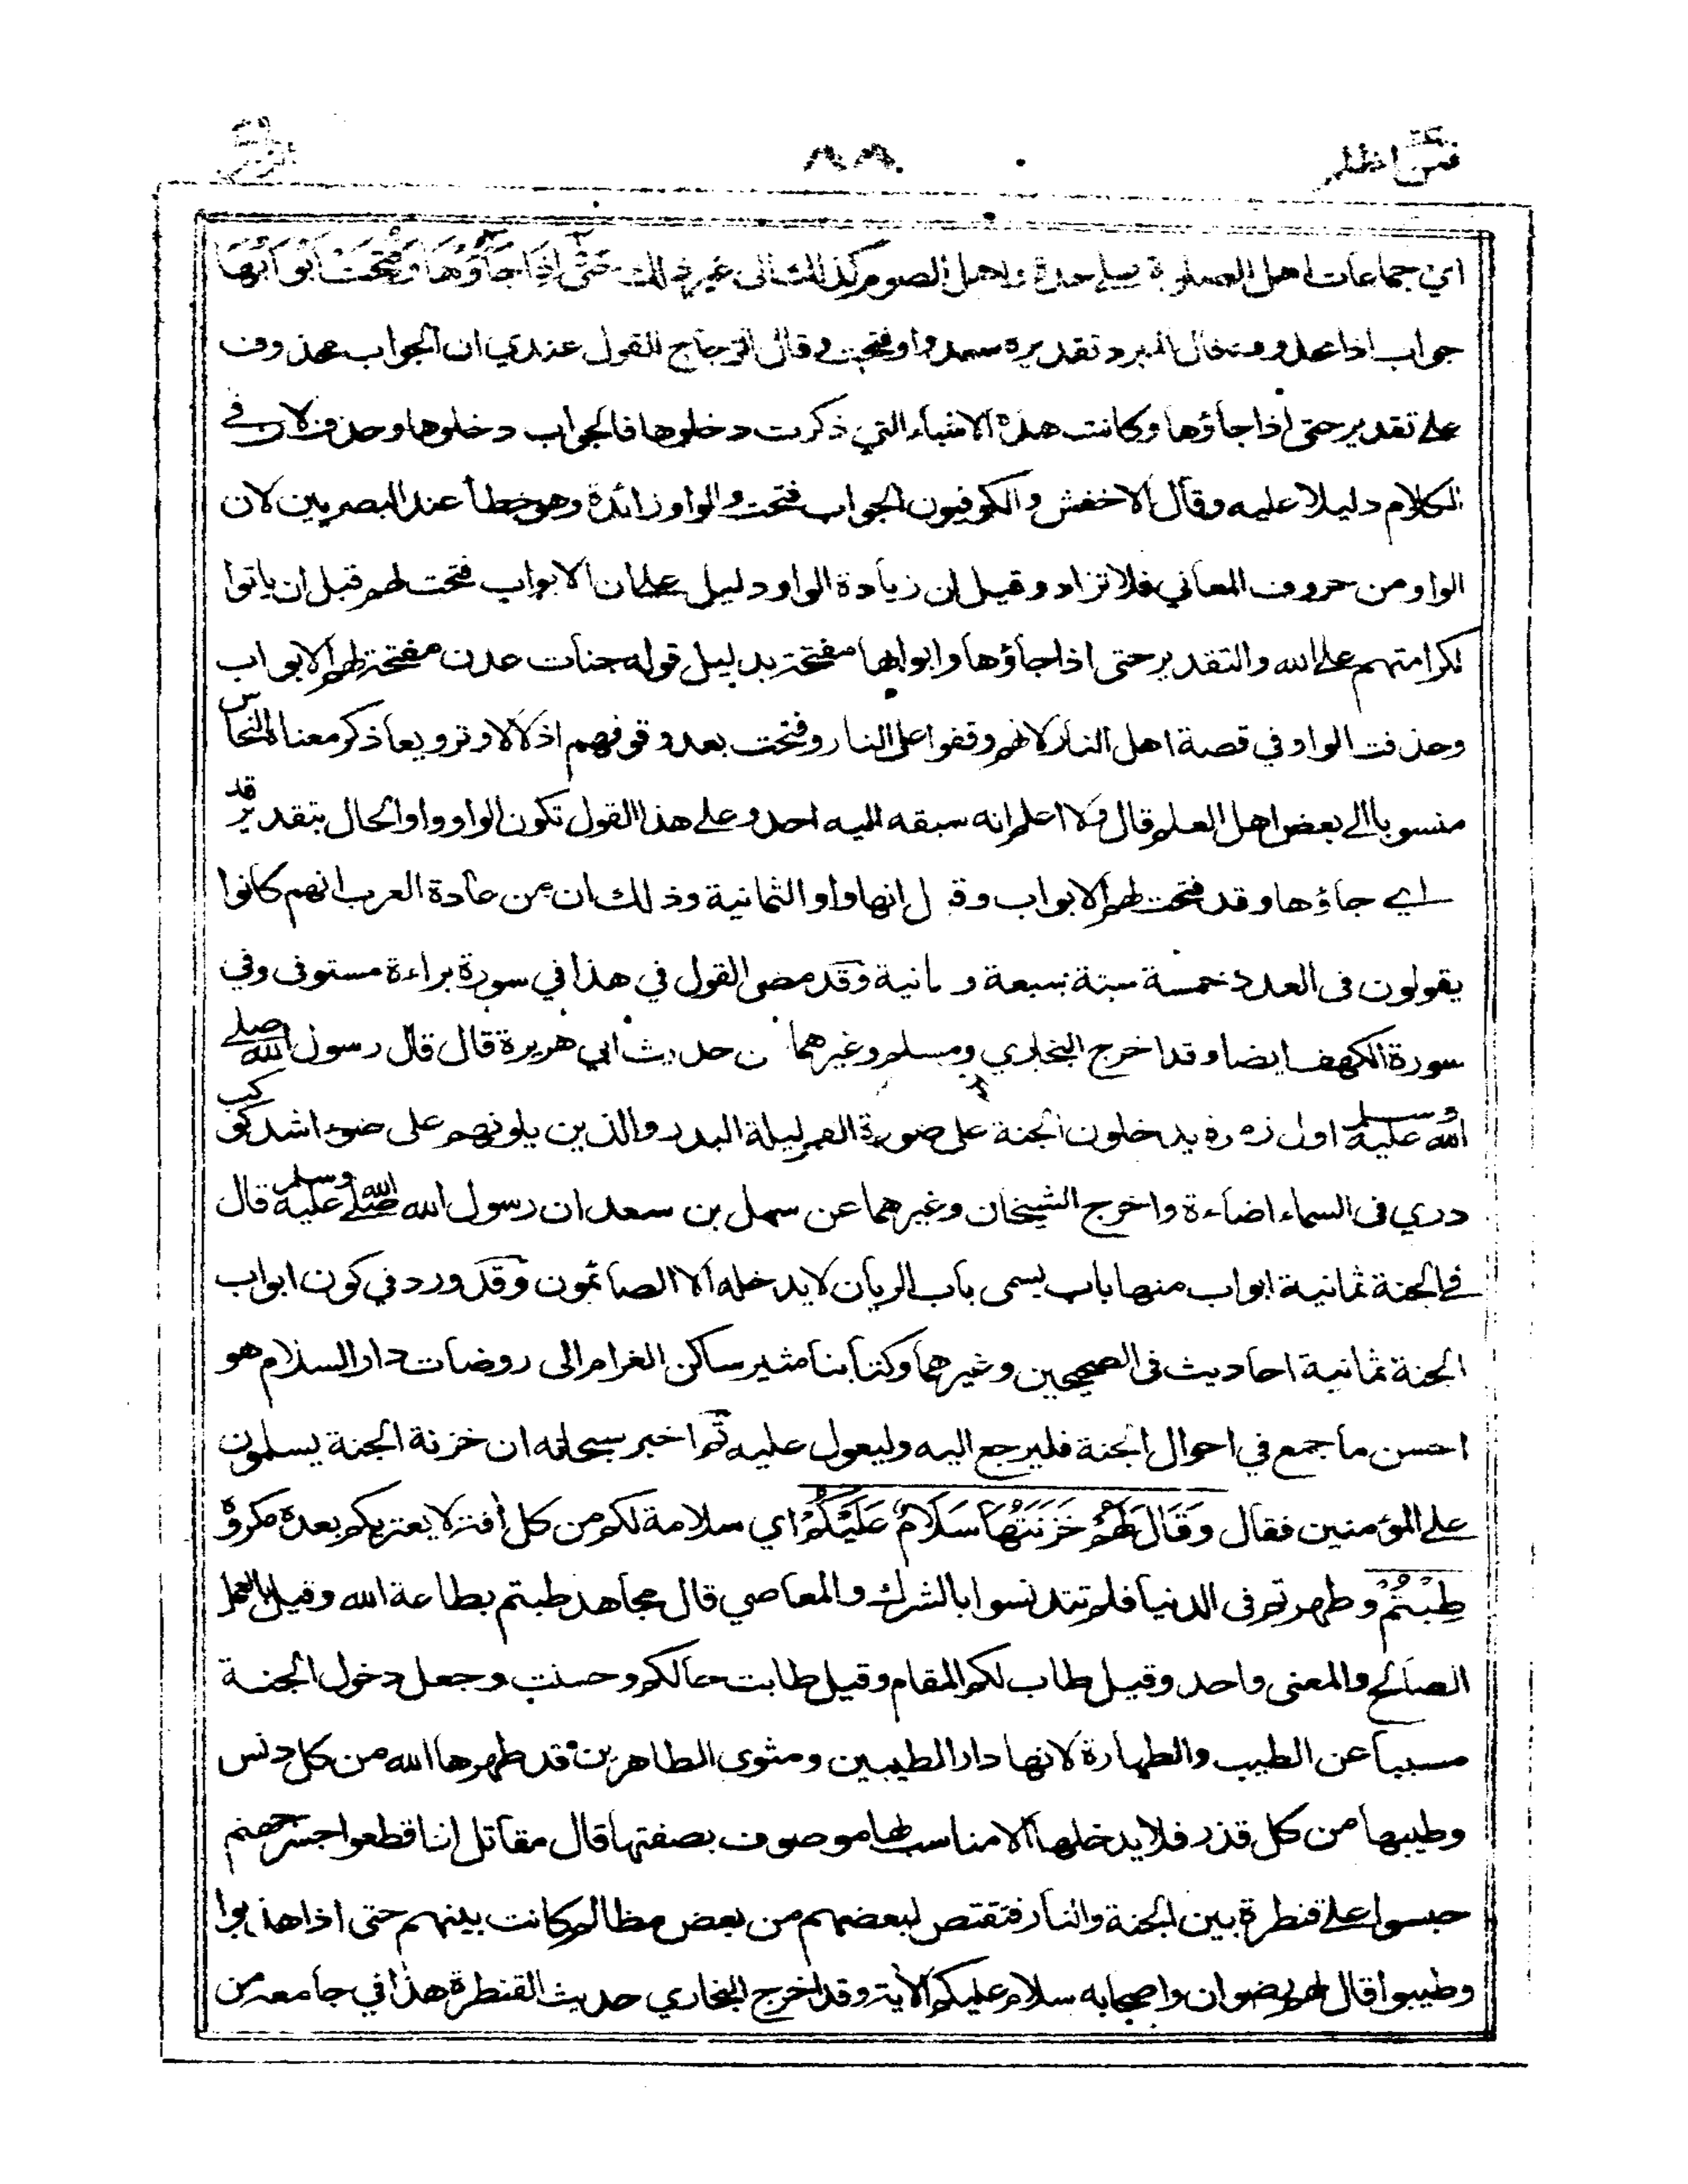 فمن اظلم
اي جماعات اهل الصلوة على حدة و اهل الصوم كذلك الى غير ذلك حَتّٰى اِذَا جَآؤُهَا وَفُتِحَتْ اَبْوَابُهَا
جواب اذا محذوف قال المبرد تقديره سعدوا وفتحت وقال الزجاج القول عندي ان الجواب محذوف
على تقدير حتى اذا جاؤها وكانت هذه الاشياء التي ذكرت دخلوها فالجواب دخلوها وحذف لان في
الكلام دليلا عليه وقال الاخفش والكوفيون الجواب فتحت والواو زائدة وهو خطأ عند البصريين لان
الواو من حروف المعاني فلا تزاد وقيل ان زيادة الواو دليل على ان الابواب فتحت لهم قبل ان ياتوا
لكرامتهم على الله والتقدير حتى اذا جاؤها وابوابها مفتحة بدليل قوله جنات عدن مفتحة لهم الابواب
وحذفت الواو في قصة اهل النار لانهم وقفوا على النار وفتحت بعد وقوفهم اذلالا وترويعا ذكر معناه النحاس
منسوبا الى بعض اهل العلم قال ولا اعلم انه سبقه اليه احد وعلى هذا القول تكون الواو واو الحال بتقدير قد
اي جاؤها وقد فتحت لهم الابواب وقيل انها واو الثمانية وذلك ان من عادة العرب انهم كانوا
يقولون في العدد خمسة ستة سبعة وثمانية وقد مضى القول في هذا في سورة براءة مستوفى وفي
سورة الكهف ايضا وقد اخرج البخاري ومسلم وغيرهما من حديث ابي هريرة قال قال رسول الله صلى
الله عليه وسلم اول زمرة يدخلون الجنة على صورة القمر ليلة البدر والذين يلونهم على ضوء اشد كوكب
دري في السماء اضاءة واخرج الشيخان وغيرهما عن سهل بن سعد ان رسول الله صلى الله عليه وسلم قال
في الجنة ثمانية ابواب منها باب يسمى باب الريان لا يدخله الا الصائمون وقد ورد في كون ابواب
الجنة ثمانية احاديث في الصحيحين وغيرهما وكتابنا مثير ساكن الغرام الى روضات دار السلام هو
احسن ما جمع في احوال الجنة فليرجع اليه وليعول عليه ثم اخبر سبحانه ان خزنة الجنة يسلمون
على المؤمنين فقال وَقَالَ لَهُمْ خَزَنَتُهَا سَلَامٌ عَلَيْكُمْ اي سلامة لكم من كل افة لا يعتريكم بعده مكروه
طِبْتُمْ وطهرتم في الدنيا فلم تتدنسوا بالشرك والمعاصي قال مجاهد طبتم بطاعة الله وقيل بالعمل
الصالح والمعنى واحد وقيل طاب لكم المقام وقيل طابت حالكم وحسنت وجعل دخول الجنة
مسببا عن الطيب والطهارة لانها دار الطيبين ومثوى الطاهرين قد طهرها الله من كل دنس
وطيبها من كل قذر فلا يدخلها الا مناسب لها موصوف بصفتها قال مقاتل اذا قطعوا جسر جهنم
حبسوا على قنطرة بين الجنة والنار فتقتص لبعضهم من بعض مظالم كانت بينهم حتى اذا هذبوا
وطيبوا قال لهم رضوان واصحابه سلام عليكم الآية وقد اخرج البخاري حديث القنطرة هذا في جامعه من